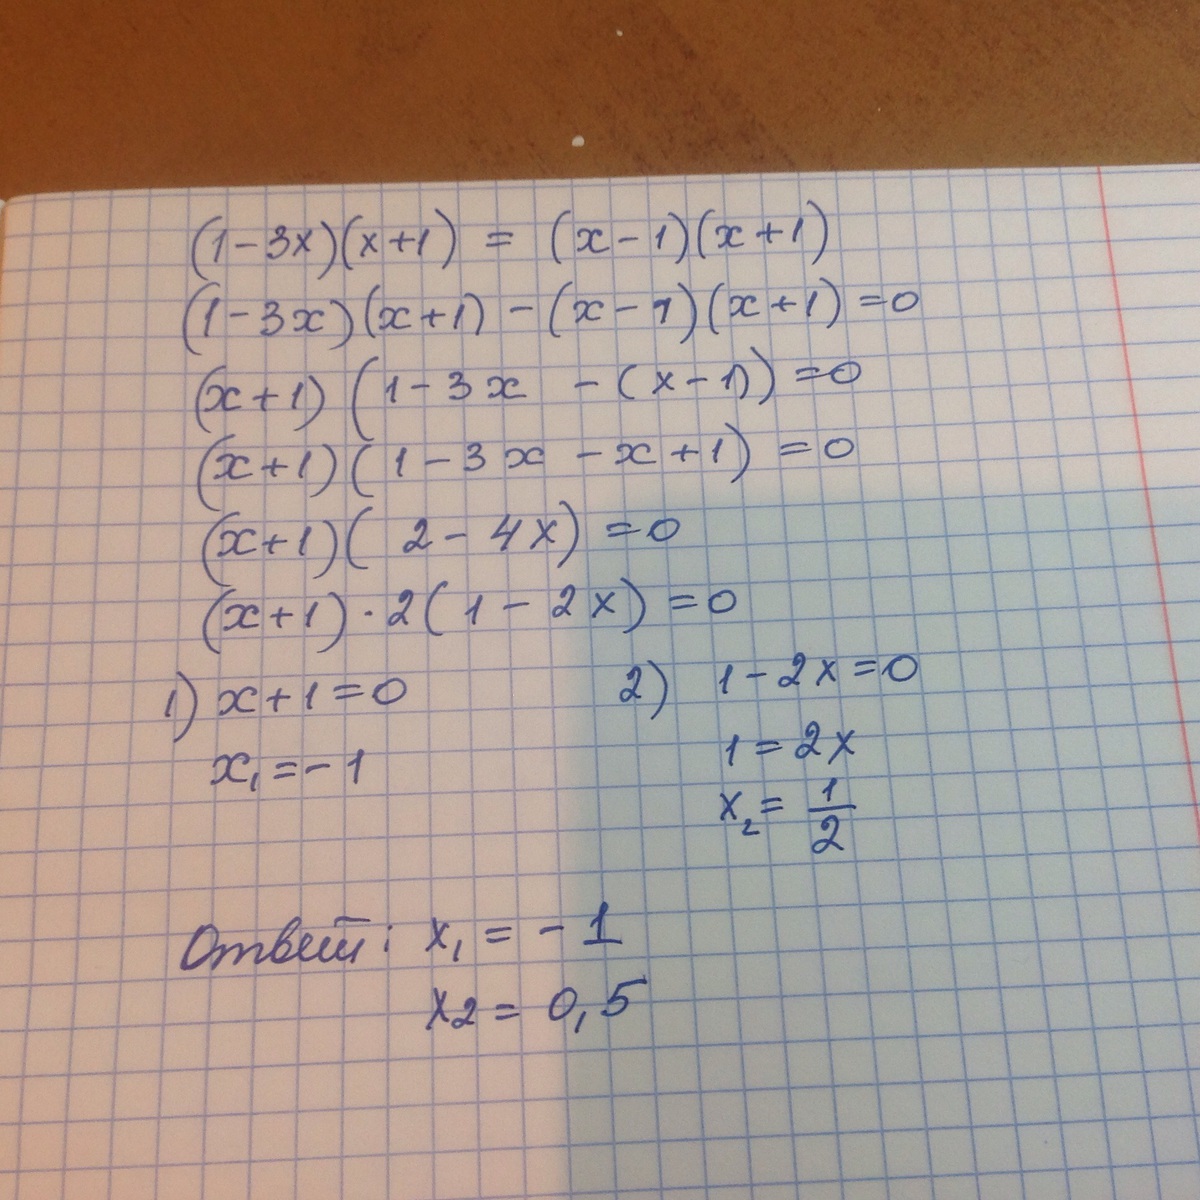 (1-3x)(x+1) = (x-1)(x+1)
(1-3x)(x+1) - (x-1)(x+1) =0
(x+1) (1-3x - (x-1)) =0
(x+1)(1-3x -x+1) =0
(x+1)( 2-4x) =0
(x+1)·2(1-2x) =0
1) x+1=0
x₁=-1
2) 1-2x=0
1=2x
x₂= 1/2
Ответ: x₁ = -1
x2= 0,5